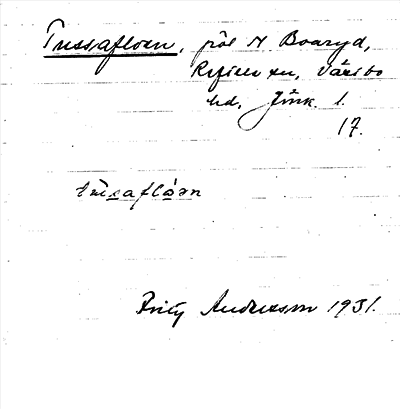 Tussafloen, på N. Boaryd,
Reftele sn, Västbo
hd, Jönk. l.
17.
tùsaflón
Fritz Andersson 1931.